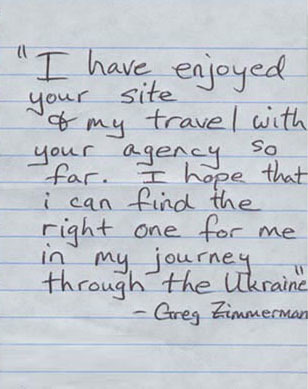 "I have enjoyed
your site
& my travel with
your agency so
far. I hope that
i can find the
right one for me
in my journey
through the Ukraine"
- Greg Zimmerman